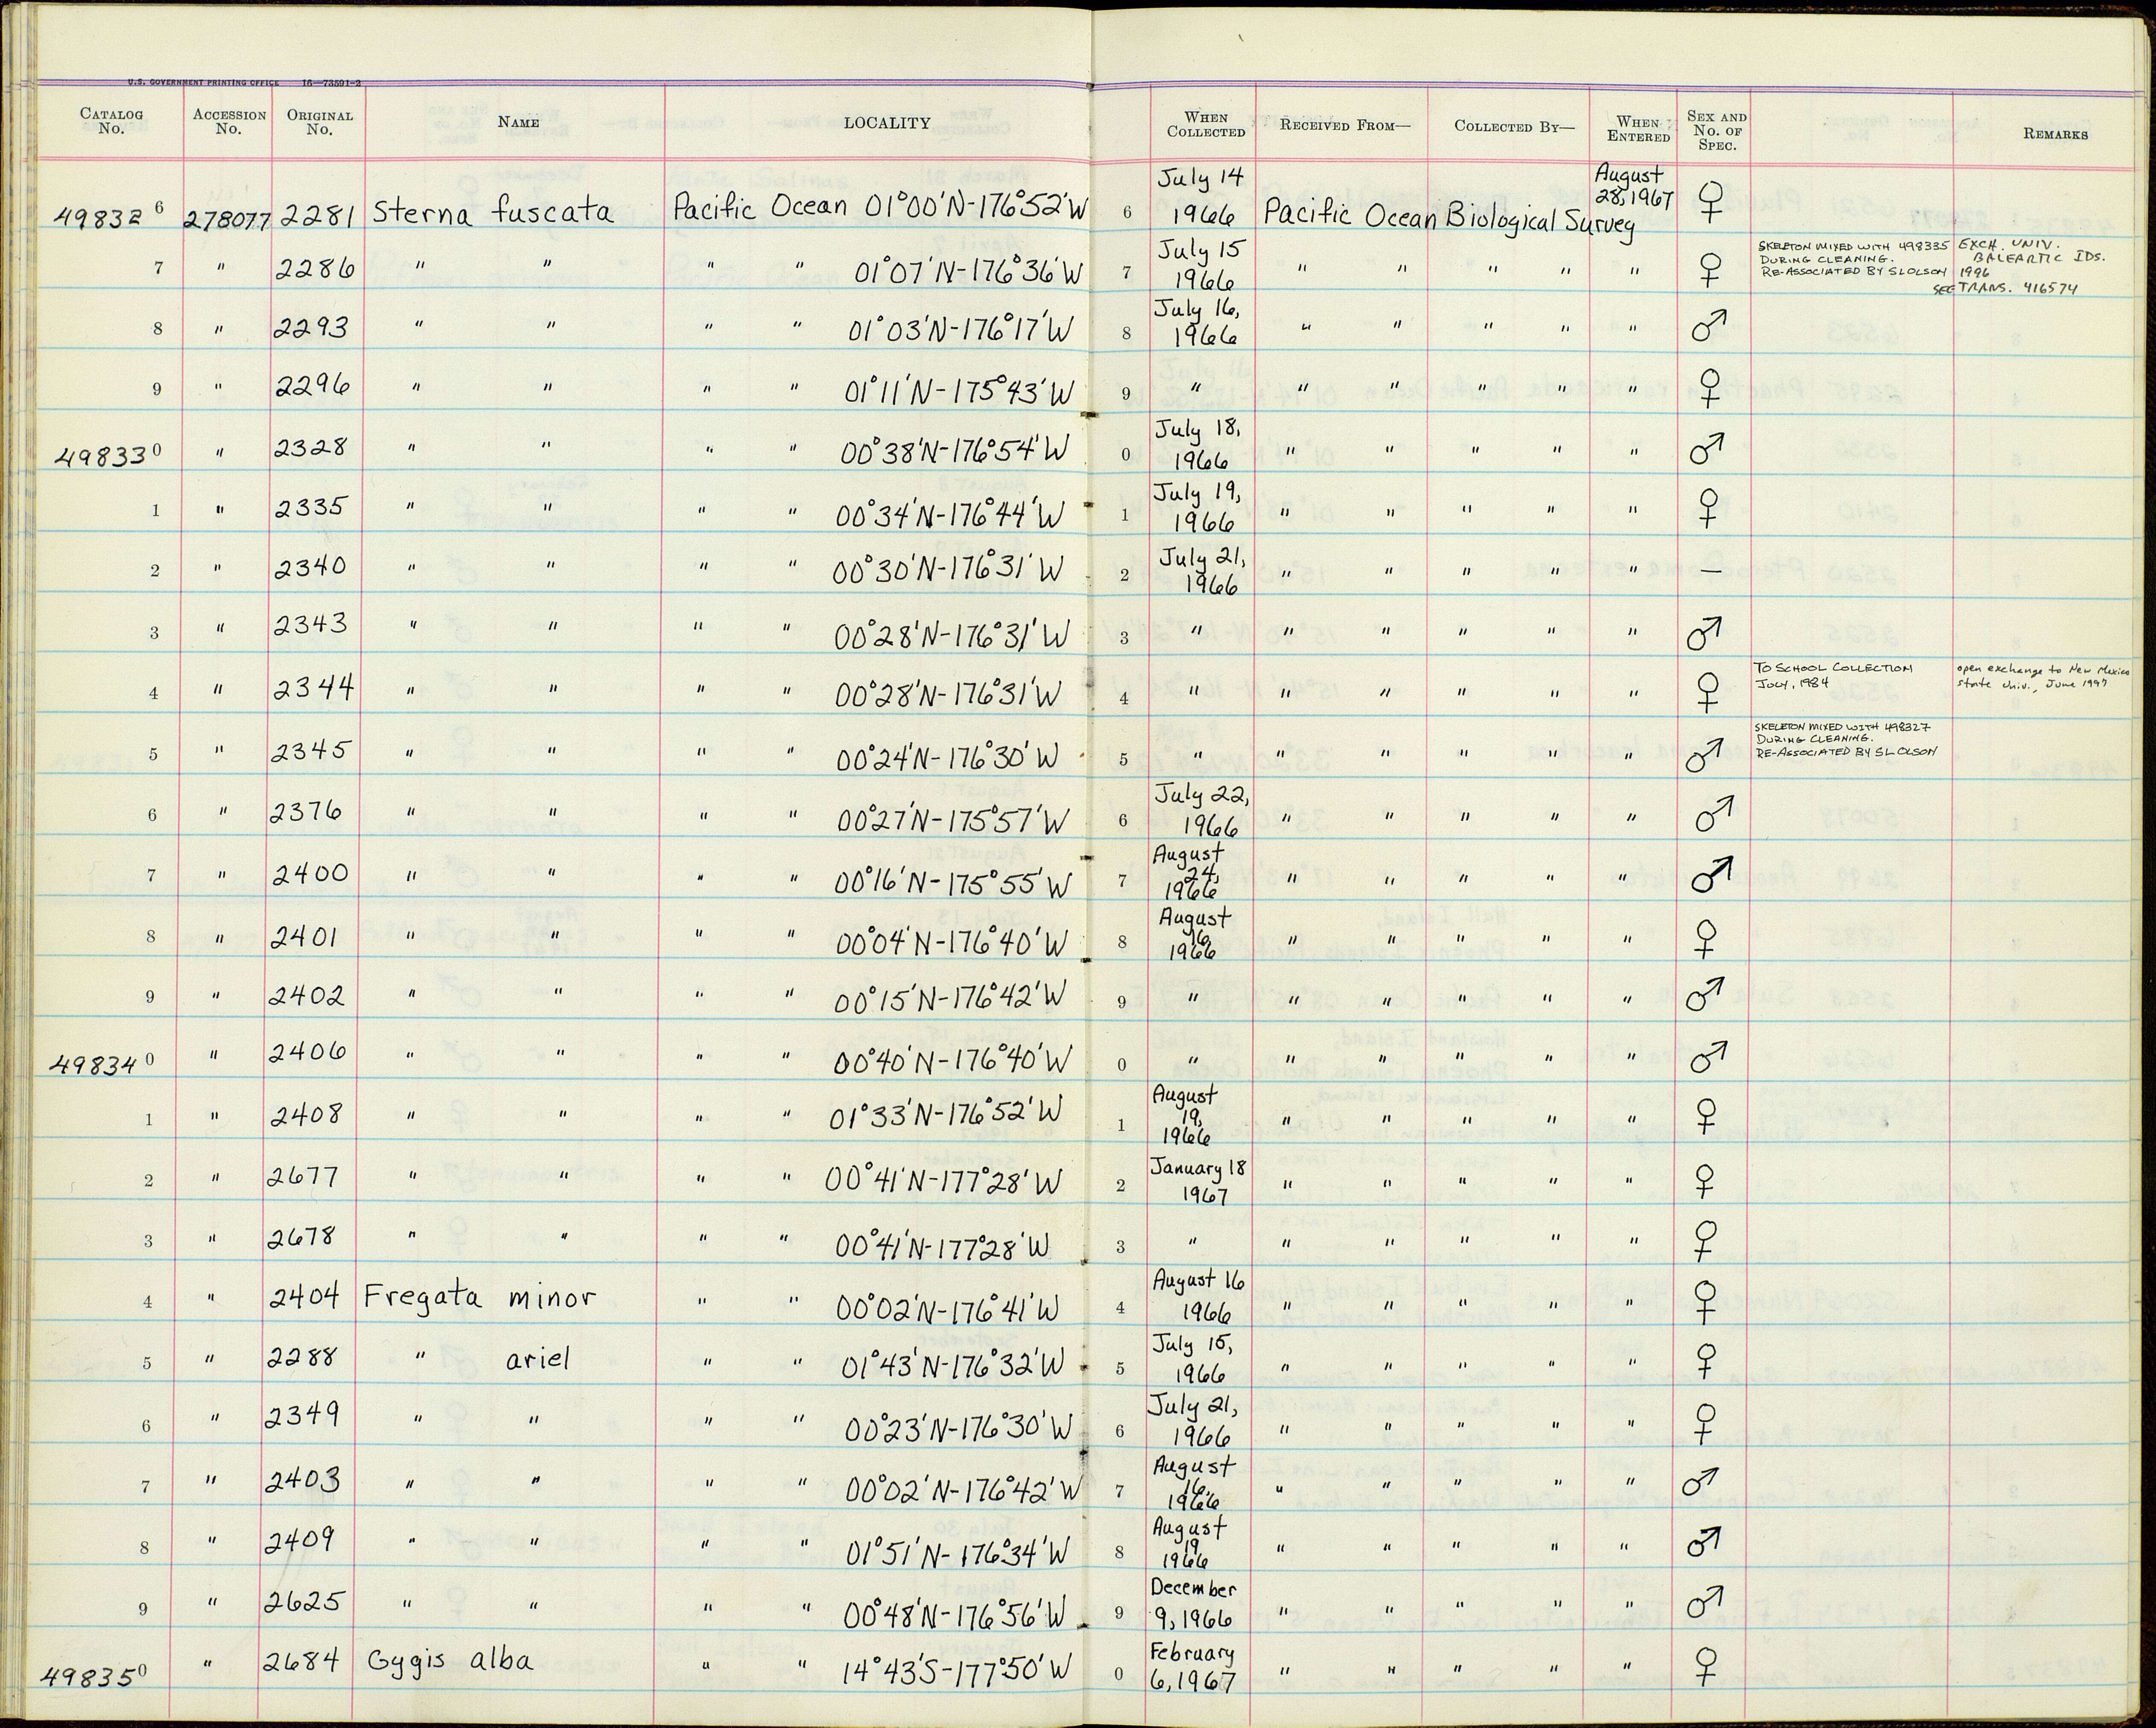 U.S. GOVERNMENT PRINTING OFFICE 16—73591-2
CATALOG No. ACCESSION No. ORIGINAL No. NAME LOCALITY WHEN COLLECTED RECEIVED FROM— COLLECTED BY— WHEN ENTERED SEX AND No. OF SPEC. REMARKS
49832 6 278077 2281 Sterna fuscata Pacific Ocean 01°00'N-176°52'W 6 July 14 1966 Pacific Ocean Biological Survey August 28, 1967 ♀
7 " 2286 " " " " 01°07'N-176°36'W 7 July 15 1966 " " " " " ♀ SKELETON MIXED WITH 498335 DURING CLEANING. RE-ASSOCIATED BY SLOLSON EXCH. UNIV. BALEARTIC IDS. 1996 SEE TRANS. 416574
8 " 2293 " " " " 01°03'N-176°17'W 8 July 16, 1966 " " " " " ♂
9 " 2296 " " " " 01°11'N-175°43'W 9 " " " " " " ♀
49833 0 " 2328 " " " " 00°38'N-176°54'W 0 July 18, 1966 " " " " " ♂
1 " 2335 " " " " 00°34'N-176°44'W 1 July 19, 1966 " " " " " ♀
2 " 2340 " " " " 00°30'N-176°31'W 2 July 21, 1966 " " " " " —
3 " 2343 " " " " 00°28'N-176°31'W 3 " " " " " " ♂
4 " 2344 " " " " 00°28'N-176°31'W 4 " " " " " " ♀ TO SCHOOL COLLECTION JULY, 1984 open exchange to New Mexico state Univ., June 1997
5 " 2345 " " " " 00°24'N-176°30'W 5 " " " " " " ♂ SKELETON MIXED WITH 498327 DURING CLEANING. RE-ASSOCIATED BY SLOLSON
6 " 2376 " " " " 00°27'N-175°57'W 6 July 22, 1966 " " " " " ♂
7 " 2400 " " " " 00°16'N-175°55'W 7 August 24, 1966 " " " " " ♂
8 " 2401 " " " " 00°04'N-176°40'W 8 August 16, 1966 " " " " " ♀
9 " 2402 " " " " 00°15'N-176°42'W 9 " " " " " " ♂
49834 0 " 2406 " " " " 00°40'N-176°40'W 0 " " " " " " ♂
1 " 2408 " " " " 01°33'N-176°52'W 1 August 19, 1966 " " " " " ♀
2 " 2677 " " " " 00°41'N-177°28'W 2 January 18 1967 " " " " " ♀
3 " 2678 " " " " 00°41'N-177°28'W 3 " " " " " " ♀
4 " 2404 Fregata minor " " 00°02'N-176°41'W 4 August 16 1966 " " " " " ♀
5 " 2288 " ariel " " 01°43'N-176°32'W 5 July 15, 1966 " " " " " ♀
6 " 2349 " " " " 00°23'N-176°30'W 6 July 21, 1966 " " " " " ♀
7 " 2403 " " " " 00°02'N-176°42'W 7 August 16, 1966 " " " " " ♂
8 " 2409 " " " " 01°51'N-176°34'W 8 August 19, 1966 " " " " " ♂
9 " 2625 " " " " 00°48'N-176°56'W 9 December 9, 1966 " " " " " ♂
49835 0 " 2684 Gygis alba " " 14°43'S-177°50'W 0 February 6, 1967 " " " " " ♀